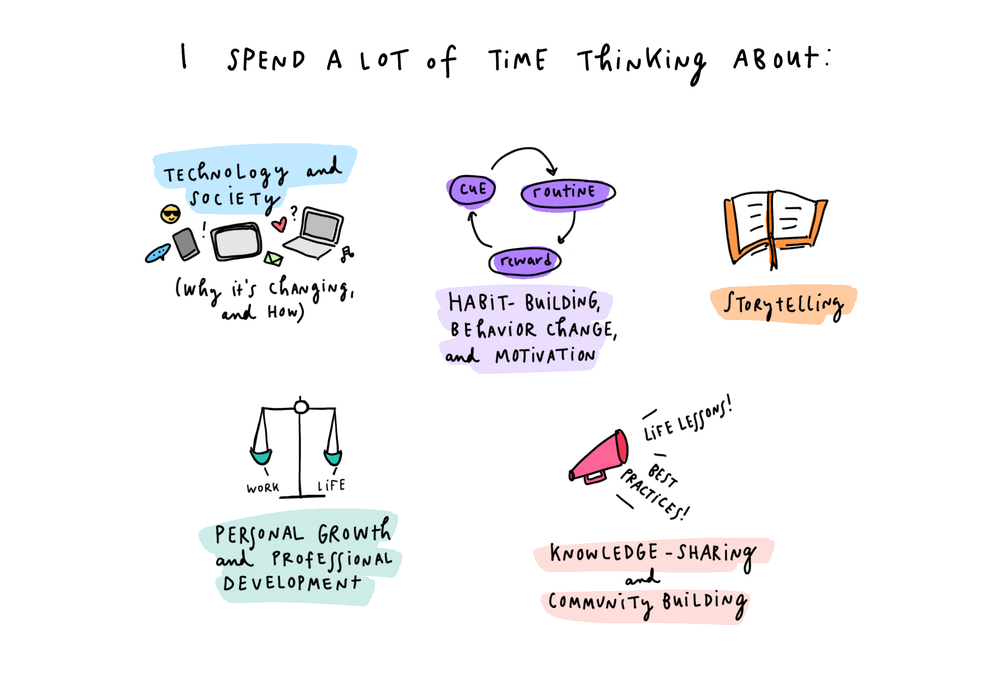 I SPEND A LOT of TIME ThiNKiNg ABOUt:
TEChNOLOGY and
SOCiETY
?
!
(why it's ChANgiNg,
and HOW)
CUE
ROUtiNE
reward
HABit-BUiLDiNg,
BEhAVIOR ChANgE,
and MOTiVATiON
StORytELLiNg
WORK
LiFE
PERSONAL GROWth
and PROfESSiONAL
DEVELOPMENt
LiFE LESSONS!
BEST
PRACTiCES!
KNOWLEDGE-SHARiNg
and
COMMUNiTY BUiLDiNg